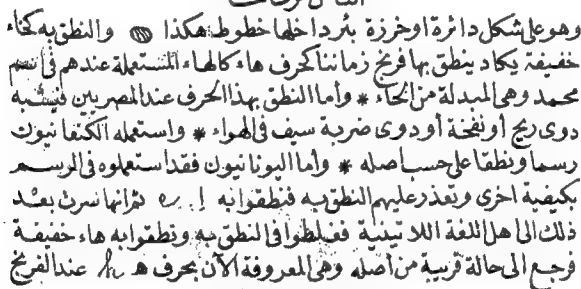 وهو على شكل دائرة او خرزة بئر داخلها خطوط هكذا والنطق به كخاء
خفيفة يكاد ينطق بها فرنج زماننا كحرف هاء كالهاء المستعملة عندهم فى اسم
محمد وهى المبدلة من الحاء * واما النطق بهذا الحرف عند المصريين فيشبه
دوى ريح او نفخة او دوى ضربة سيف فى الهواء * واستعمله الكنعانيون
رسما ونطقا على حسب اصله * واما اليونانيون فقد استعملوه فى الرسم
بكيفية اخرى وتعذر عليهم النطق به فنطقوا به ثم انها سرت بعد
ذلك الى اهل اللغة اللاتينية فغلطوا فى النطق به ونطقوا به هاء خفيفة
ورجع الى حالة قريبة من اصله وهى المعروفة الآن بحرف ه h عند الفرنج